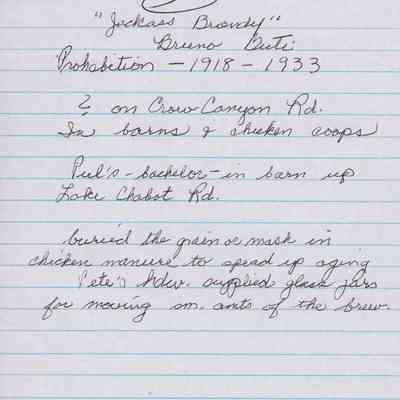 "Jackass Brandy"
Bruno Buti
Prohabition - 1918 - 1933
? on Crow Canyon Rd.
In barns & chicken coops
Pul's - bachelor - in barn up
Lake Chabot Rd.
buried the grain or mask in
chicken manure to spead up aging
Pete's hdw. supplied glass jars
for moving sm. amts of the brew.